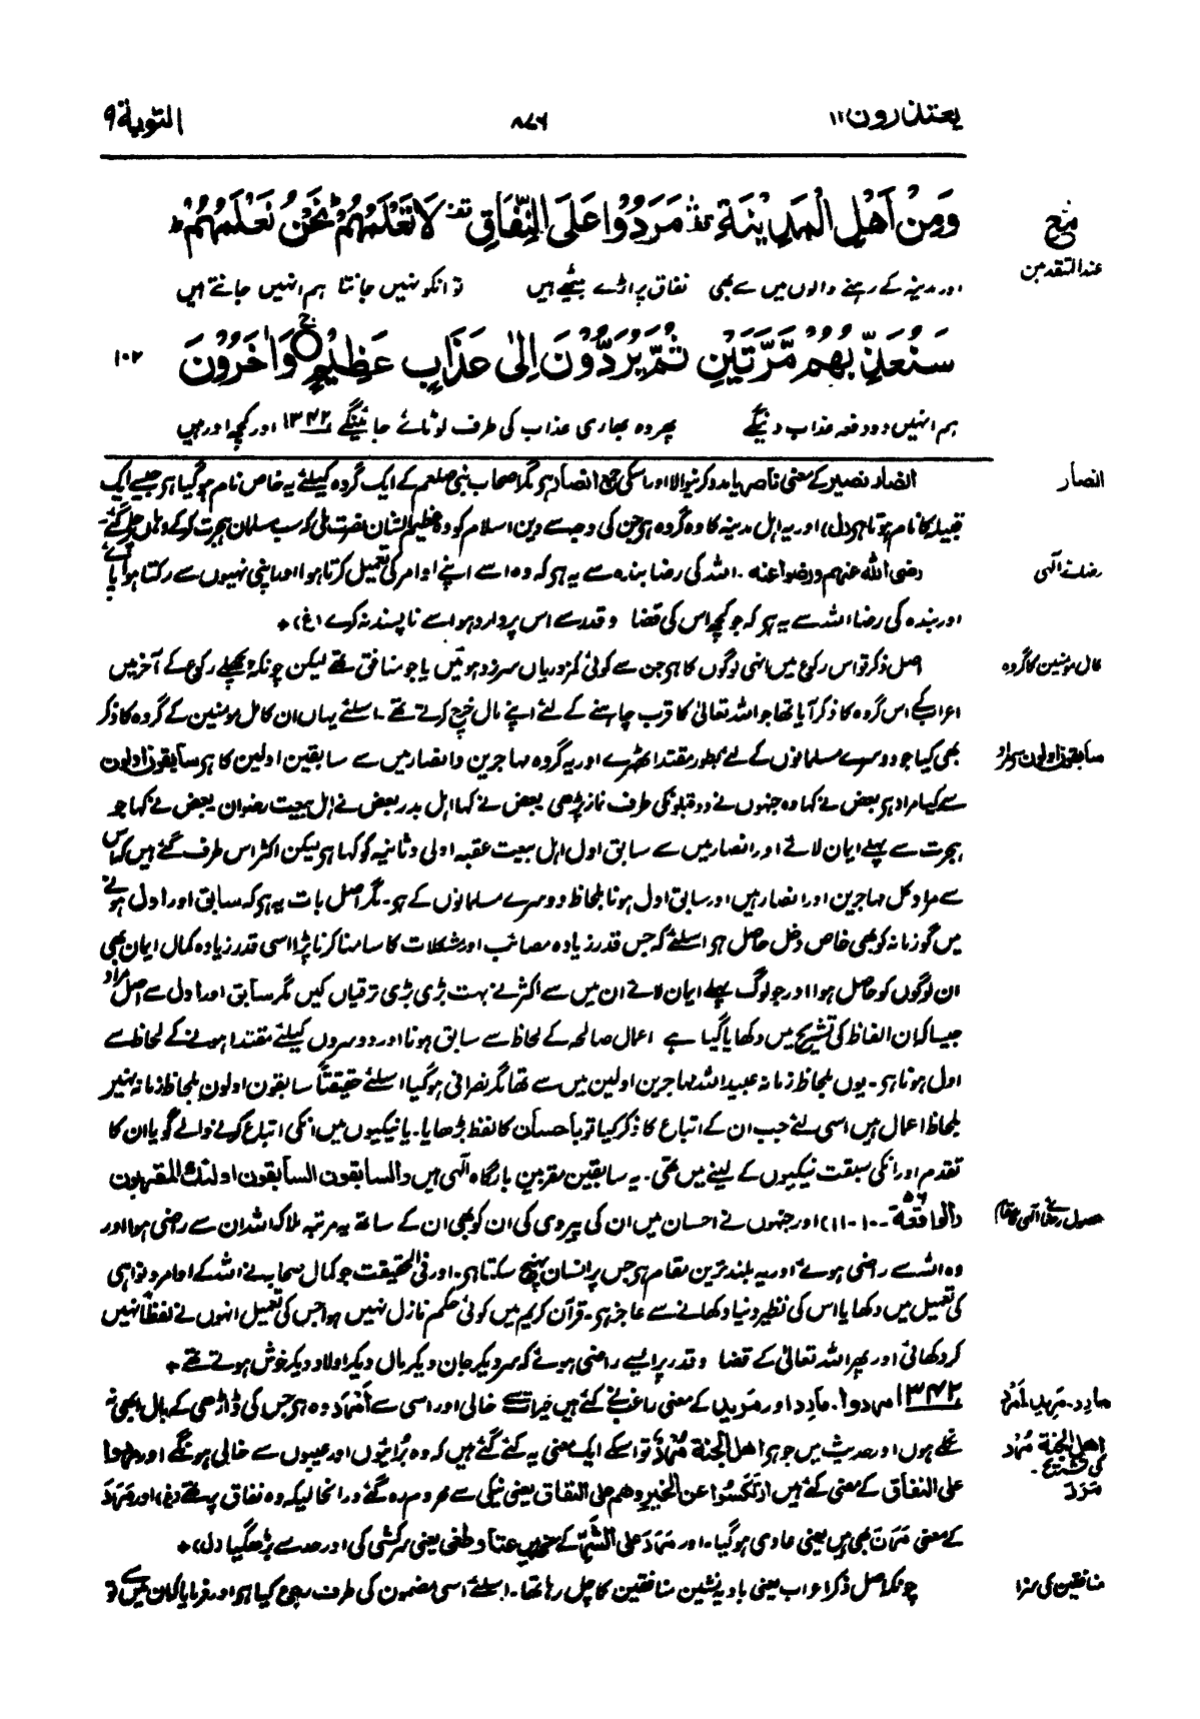 یعتذرون ۱۱
۸۷۶
التوبة ۹
وَمِنْ اَهْلِ الْمَدِیْنَةِ ۛ مَرَدُوْا عَلَی النِّفَاقِ ۛ لَا تَعْلَمُهُمْ ؕ نَحْنُ نَعْلَمُهُمْ ؕ
منع
عند المتقدمین
اور مدینہ کے رہنے والوں میں سے بھی نفاق پر اڑے بیٹھے ہیں تو انکو نہیں جانتا ہم انہیں جانتے ہیں
سَنُعَذِّبُهُمْ مَّرَّتَیْنِ ثُمَّ یُرَدُّوْنَ اِلٰی عَذَابٍ عَظِیْمٍ ۚ وَاٰخَرُوْنَ
۱۰۲
ہم انہیں دو دفعہ عذاب دینگے پھر وہ بھاری عذاب کی طرف لوٹائے جائینگے ۱۳۴۲ اور کچھ اور ہیں
انصار
انصار نصیر کے معنی ناصر یا مدد کرنیوالا اور اسکی جمع انصار ہی مگر اصحاب نبی صلعم کے ایک گروہ کیلئے یہ خاص نام ہو گیا ہی جیسے ایک
قبیلہ کا نام ہوتا ہی (ل) اور یہ اہل مدینہ کا وہ گروہ ہی جن کی وجہ سے دین اسلام کو وہ عظیم الشان نصرت ملی کہ سب مسلمان ہجرت کرکے وہاں چلے گئے
رضائے آلٰہی
رضی اللہ عنہم ورضوا عنہ ۔ اللہ کی رضا بندہ سے یہ ہو کہ وہ اسے اپنے اوامر کی تعمیل کرتا ہوا اور اپنی نہیوں سے رکتا ہوا پائے
اور بندہ کی رضا اللہ سے یہ ہو کہ جو کچھ اس کی قضا و قدر سے اس پر وارد ہو اسے نا پسند نہ کرے (غ) *
کامل مومنین کا گروہ
اصل ذکر تو اس رکوع میں انہی لوگوں کا ہی جن سے کوئی کمزوریاں سرزد ہوئیں یا جو منافق تھے لیکن چونکہ پچھلے رکوع کے آخر میں
اعراب کے اس گروہ کا ذکر آیا تھا جو اللہ تعالیٰ کا قرب چاہنے کے لئے اپنے مال خرچ کرتے تھے ۔ اسلئے یہاں ان کامل مومنین کے گروہ کا ذکر
سابقون اولون سے مراد
بھی کیا جو دوسرے مسلمانوں کے لئے بطور مقتدا ٹھہرے اور یہ گروہ مہاجرین و انصار میں سے سابقین اولین کا ہی سابقون اولون
سے کیا مراد ہی بعض نے کہا وہ جنہوں نے دو قبلوں کی طرف نماز پڑھی بعض نے کہا اہل بدر بعض نے اہل بیعت رضوان بعض نے کہا جو
ہجرت سے پہلے ایمان لائے اور انصار میں سے سابق اول اہل بیعت عقبہ اولیٰ و ثانیہ کو کہا ہی لیکن اکثر اس طرف گئے ہیں کہ اس
سے مراد کل مہاجرین اور انصار ہیں اور سابق اول ہونا بلحاظ دوسرے مسلمانوں کے ہی ۔ مگر اصل بات یہ ہی کہ سابق اور اول ہونے
میں گو زمانہ کو بھی خاص دخل حاصل ہو اسلئے کہ جس قدر زیادہ مصائب اور مشکلات کا سامنا کرنا پڑا اسی قدر زیادہ کمال ایمان بھی
ان لوگوں کو حاصل ہوا اور جو لوگ پہلے ایمان لائے ان میں سے اکثر نے بہت بڑی بڑی ترقیاں کیں مگر سابق اور اول سے اصل مراد
جیسا کہ ان الفاظ کی تشریح میں دکھایا گیا ہے اعمال صالحہ کے لحاظ سے سابق ہونا اور دوسروں کیلئے مقتدا ہونے کے لحاظ سے
اول ہونا ہی ۔ یوں بلحاظ زمانہ عبید اللہ مہاجرین اولین میں سے تھا مگر نصرانی ہو گیا اسلئے حقیقتاً سابقون اولون بلحاظ زمانہ نہیں
بلحاظ اعمال ہیں اسی لئے جب ان کے اتباع کا ذکر کیا تو باحسان کا لفظ بڑھایا ۔ یا نیکیوں میں انکی اتباع کرنے والے گویا ان کا
تقدم اور انکی سبقت نیکیوں کے لینے میں تھی ۔ یہ سابقین مقربین بارگاہ آلٰہی ہیں والسابقون السابقون اولئک المقربون
حصول رضائے آلٰہی کا مقام
(الواقعة ۵۶ ۔ ۱۰ ۔ ۱۱) اور جنہوں نے احسان میں ان کی پیروی کی ان کو بھی ان کے ساتھ یہ مرتبہ ملا کہ اللہ ان سے راضی ہوا اور
وہ اللہ سے راضی ہوئے اور یہ بلند ترین مقام ہی جس پر انسان پہنچ سکتا ہی ۔ اور فی الحقیقت جو کمال صحابہ نے اللہ کے اوامر و نواہی
کی تعمیل میں دکھایا اس کی نظیر دنیا دکھانے سے عاجز ہی ۔ قرآن کریم میں کوئی حکم نازل نہیں ہوا جس کی تعمیل انہوں نے لفظاً نہیں
کر دکھائی اور پھر اللہ تعالیٰ کے قضا و قدر پر ایسے راضی ہوئے کہ سر دیکر جان دیکر مال دیکر اولاد دیکر خوش ہوتے تھے *
مارد ۔ مرید ۔ امرد
۱۳۴۲ مردوا ۔ مارد اور مرید کے معنی راغب نے کئے ہیں خیرات سے خالی اور اسی سے اَمْرَد وہ ہی جس کی ڈاڑھی کے بال ابھی نہ
اهل الجنة مُرْد کی تشریح ۔
نکلے ہوں اور حدیث میں جو ہی اهل الجنة مُرْدٌ تو اسکے ایک معنی یہ کئے گئے ہیں کہ وہ برائیوں اور عیبوں سے خالی ہونگے اور مردوا
مرد
علی النفاق کے معنی کئے ہیں ارتکسوا عن الخیر وهم علی النفاق یعنی نیکی سے محروم رہ گئے درانحالیکہ وہ نفاق پر تھے (غ) اور مَرَدَ
کے معنی مَرَنَ بھی ہیں یعنی عادی ہو گیا ۔ اور مَرَدَ علی الشر کے معنی ہیں عتا و طغی یعنی سرکشی کی اور حد سے بڑھ گیا (ل) *
منافقین کی سزا
چونکہ اصل ذکر اعراب یعنی بادیہ نشین منافقین کا چل رہا تھا ۔ اسلئے اسی مضمون کی طرف رجوع کیا ہی اور فرمایا کہ ان میں سے تو